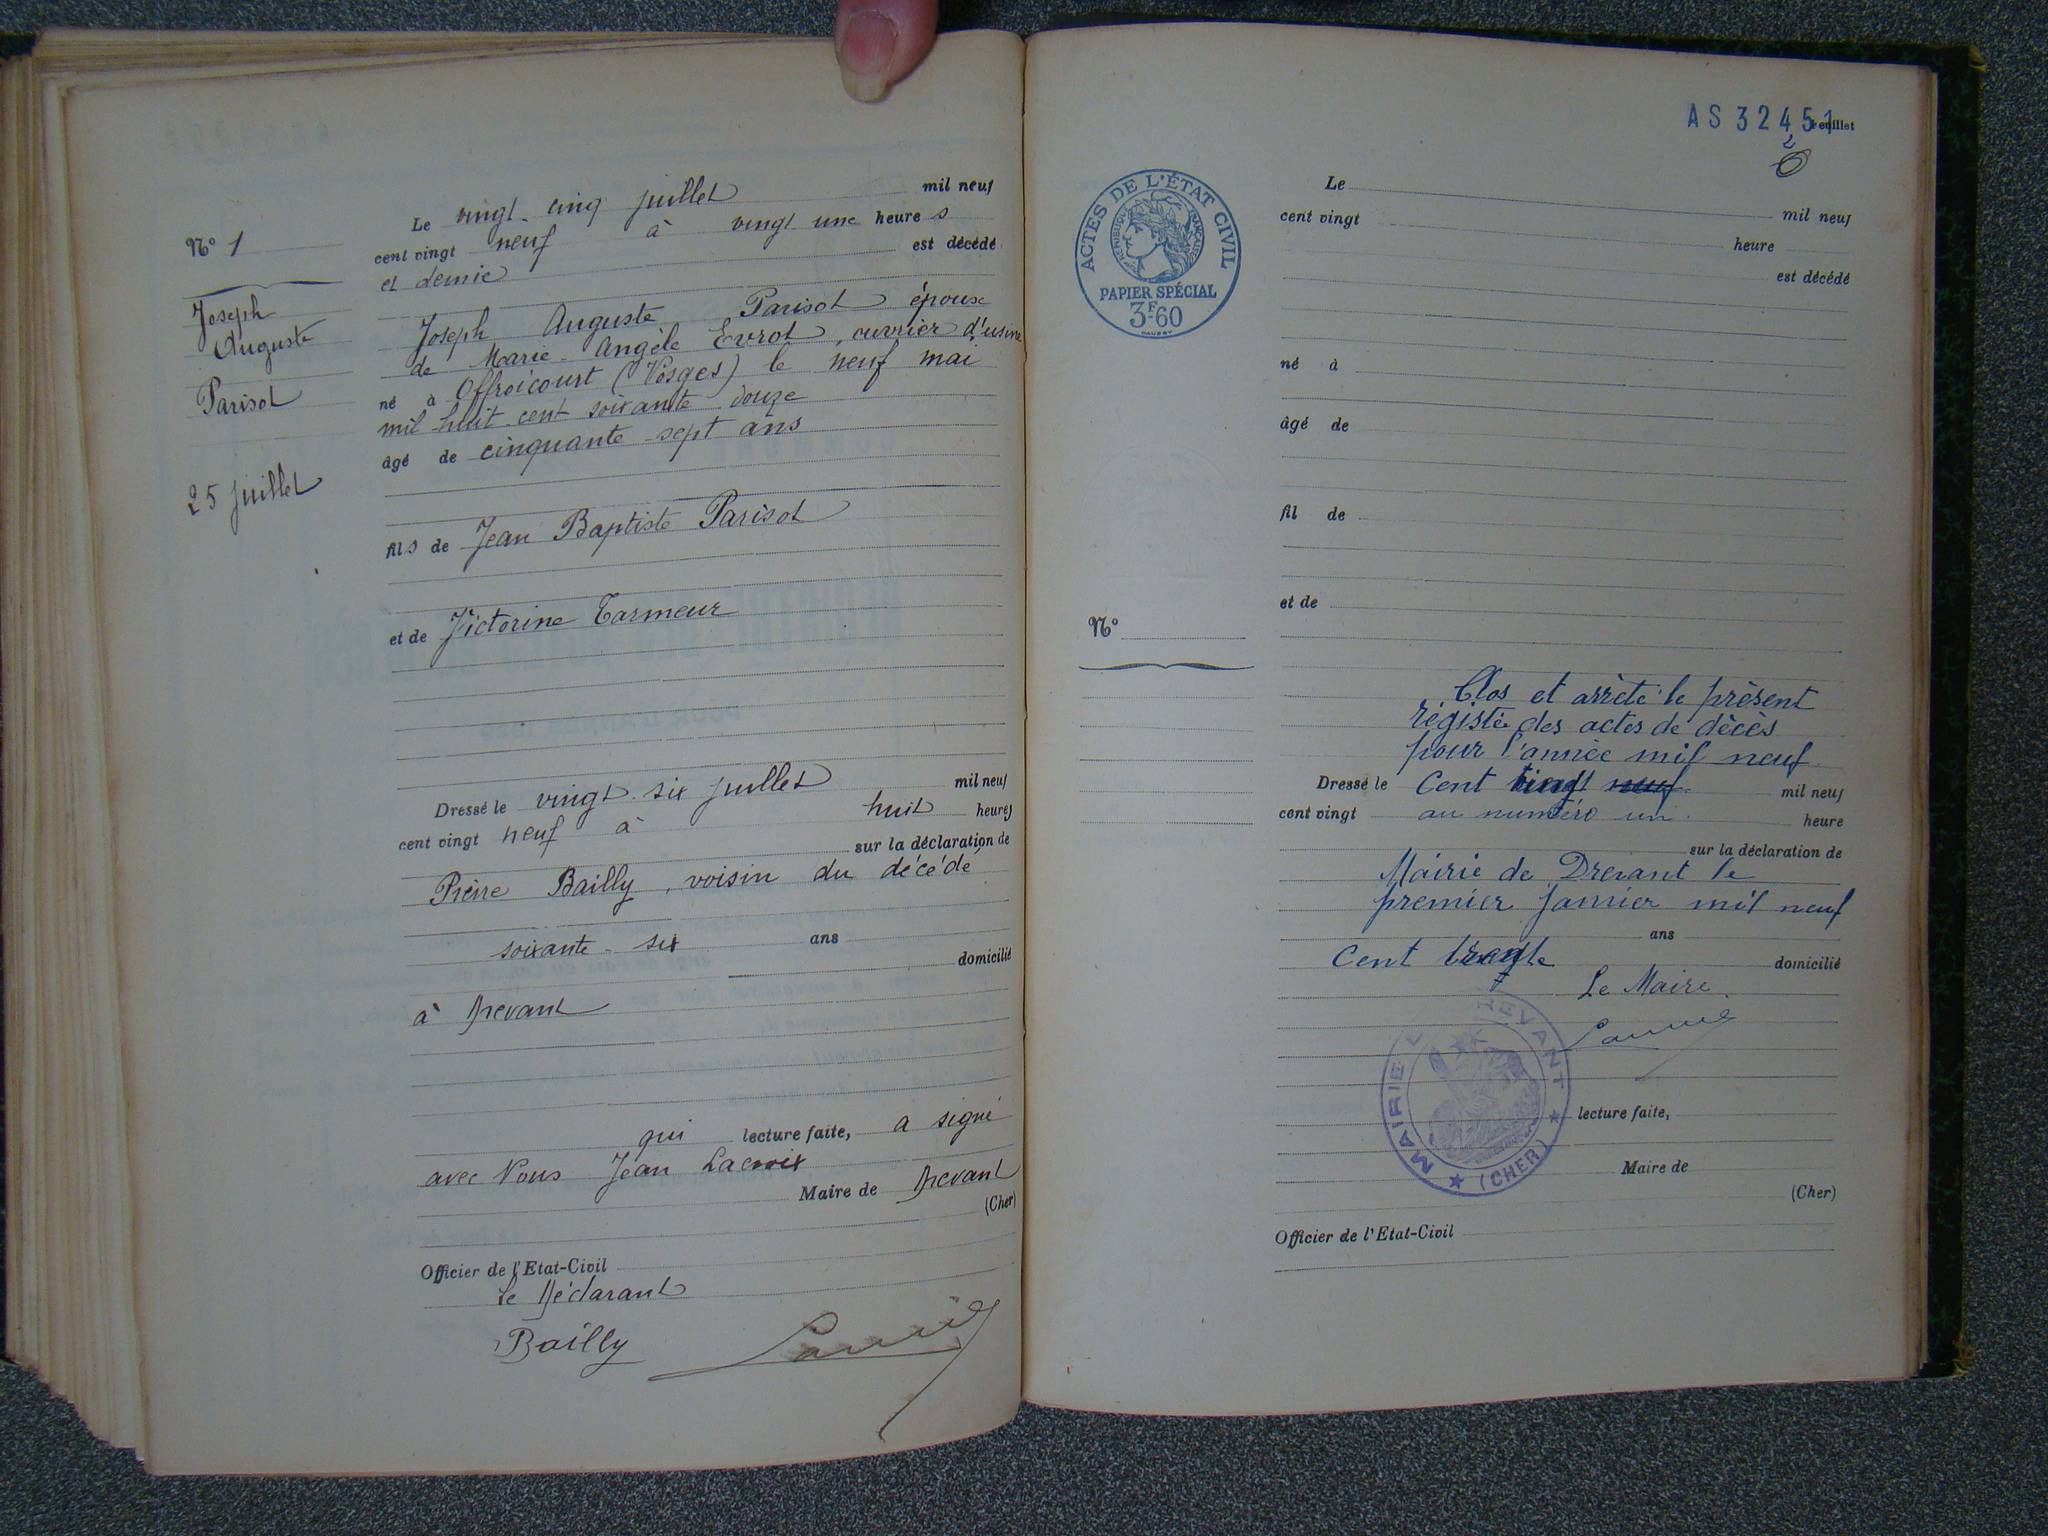 N° 1
Joseph
Auguste
Parisot
25 juillet
Le vingt-cinq juillet mil neuf
cent vingt neuf à vingt une heures
et demie est décédé
Joseph Auguste Parisot époux
de Marie-Angèle Evrot, ouvrier d'usine
né à Offroicourt (Vosges) le neuf mai
mil huit cent soixante douze
âgé de cinquante-sept ans
fils de Jean Baptiste Parisot
et de Victorine Tarmeur
Dressé le vingt-six juillet mil neuf
cent vingt neuf à huit heures
sur la déclaration de
Pierre Bailly, voisin du décédé
soixante-six ans
domicilié
à Drevant
qui lecture faite, a signé
avec Nous Jean Lacroix
Maire de Drevant
(Cher)
Officier de l'Etat-Civil
Le Déclarant
Bailly
AS 32451
Feuillet
2
ACTES DE L'ÉTAT CIVIL
RÉPUBLIQUE FRANÇAISE
PAPIER SPÉCIAL
3F60
Le mil neuf
cent vingt heure
est décédé
né à
âgé de
fil de
et de
N°
Clos et arrêté le présent
régistre des actes de décès
pour l'année mil neuf
Dressé le Cent vingt neuf mil neuf
cent vingt au numéro un heure
sur la déclaration de
Mairie de Drevant le
premier Janvier mil neuf
ans
Cent trente domicilié
Le Maire
MAIRIE DE DREVANT
(CHER)
lecture faite,
Maire de
(Cher)
Officier de l'Etat-Civil